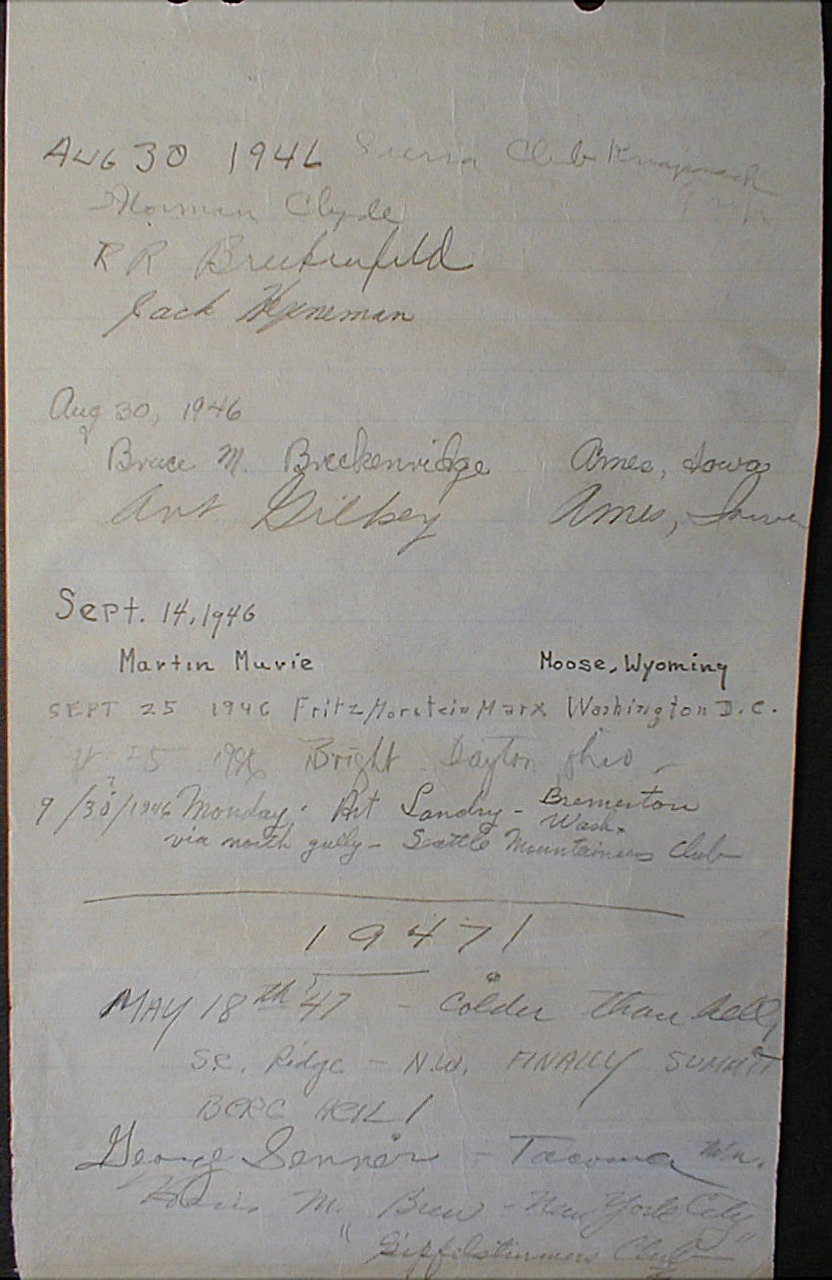 AUG 30 1946 Sierra Club Knapsack
Norman Clyde Trip
R R Breckenfeld
Jack Heneman
Aug 30, 1946
Bruce M. Breckenridge Ames, Iowa
Art Gilkey Ames, Iowa
Sept. 14, 1946
Martin Murie Moose, Wyoming
SEPT 25 1946 Fritz Morstein Marx Washington D.C.
" 25 1946 Bright Dayton Ohio
9/30/1946 Monday. Art Landry - Bremerton
Wash.
via north gully - Seattle Mountaineers Club
1947!
MAY 18th '47 - Colder than hell,
SE. Ridge - N.W. FINALLY SUMMIT
BERG HEIL!
George Senner - Tacoma Wn.
M. Brew - New York City
"Gipfelstürmers Club"